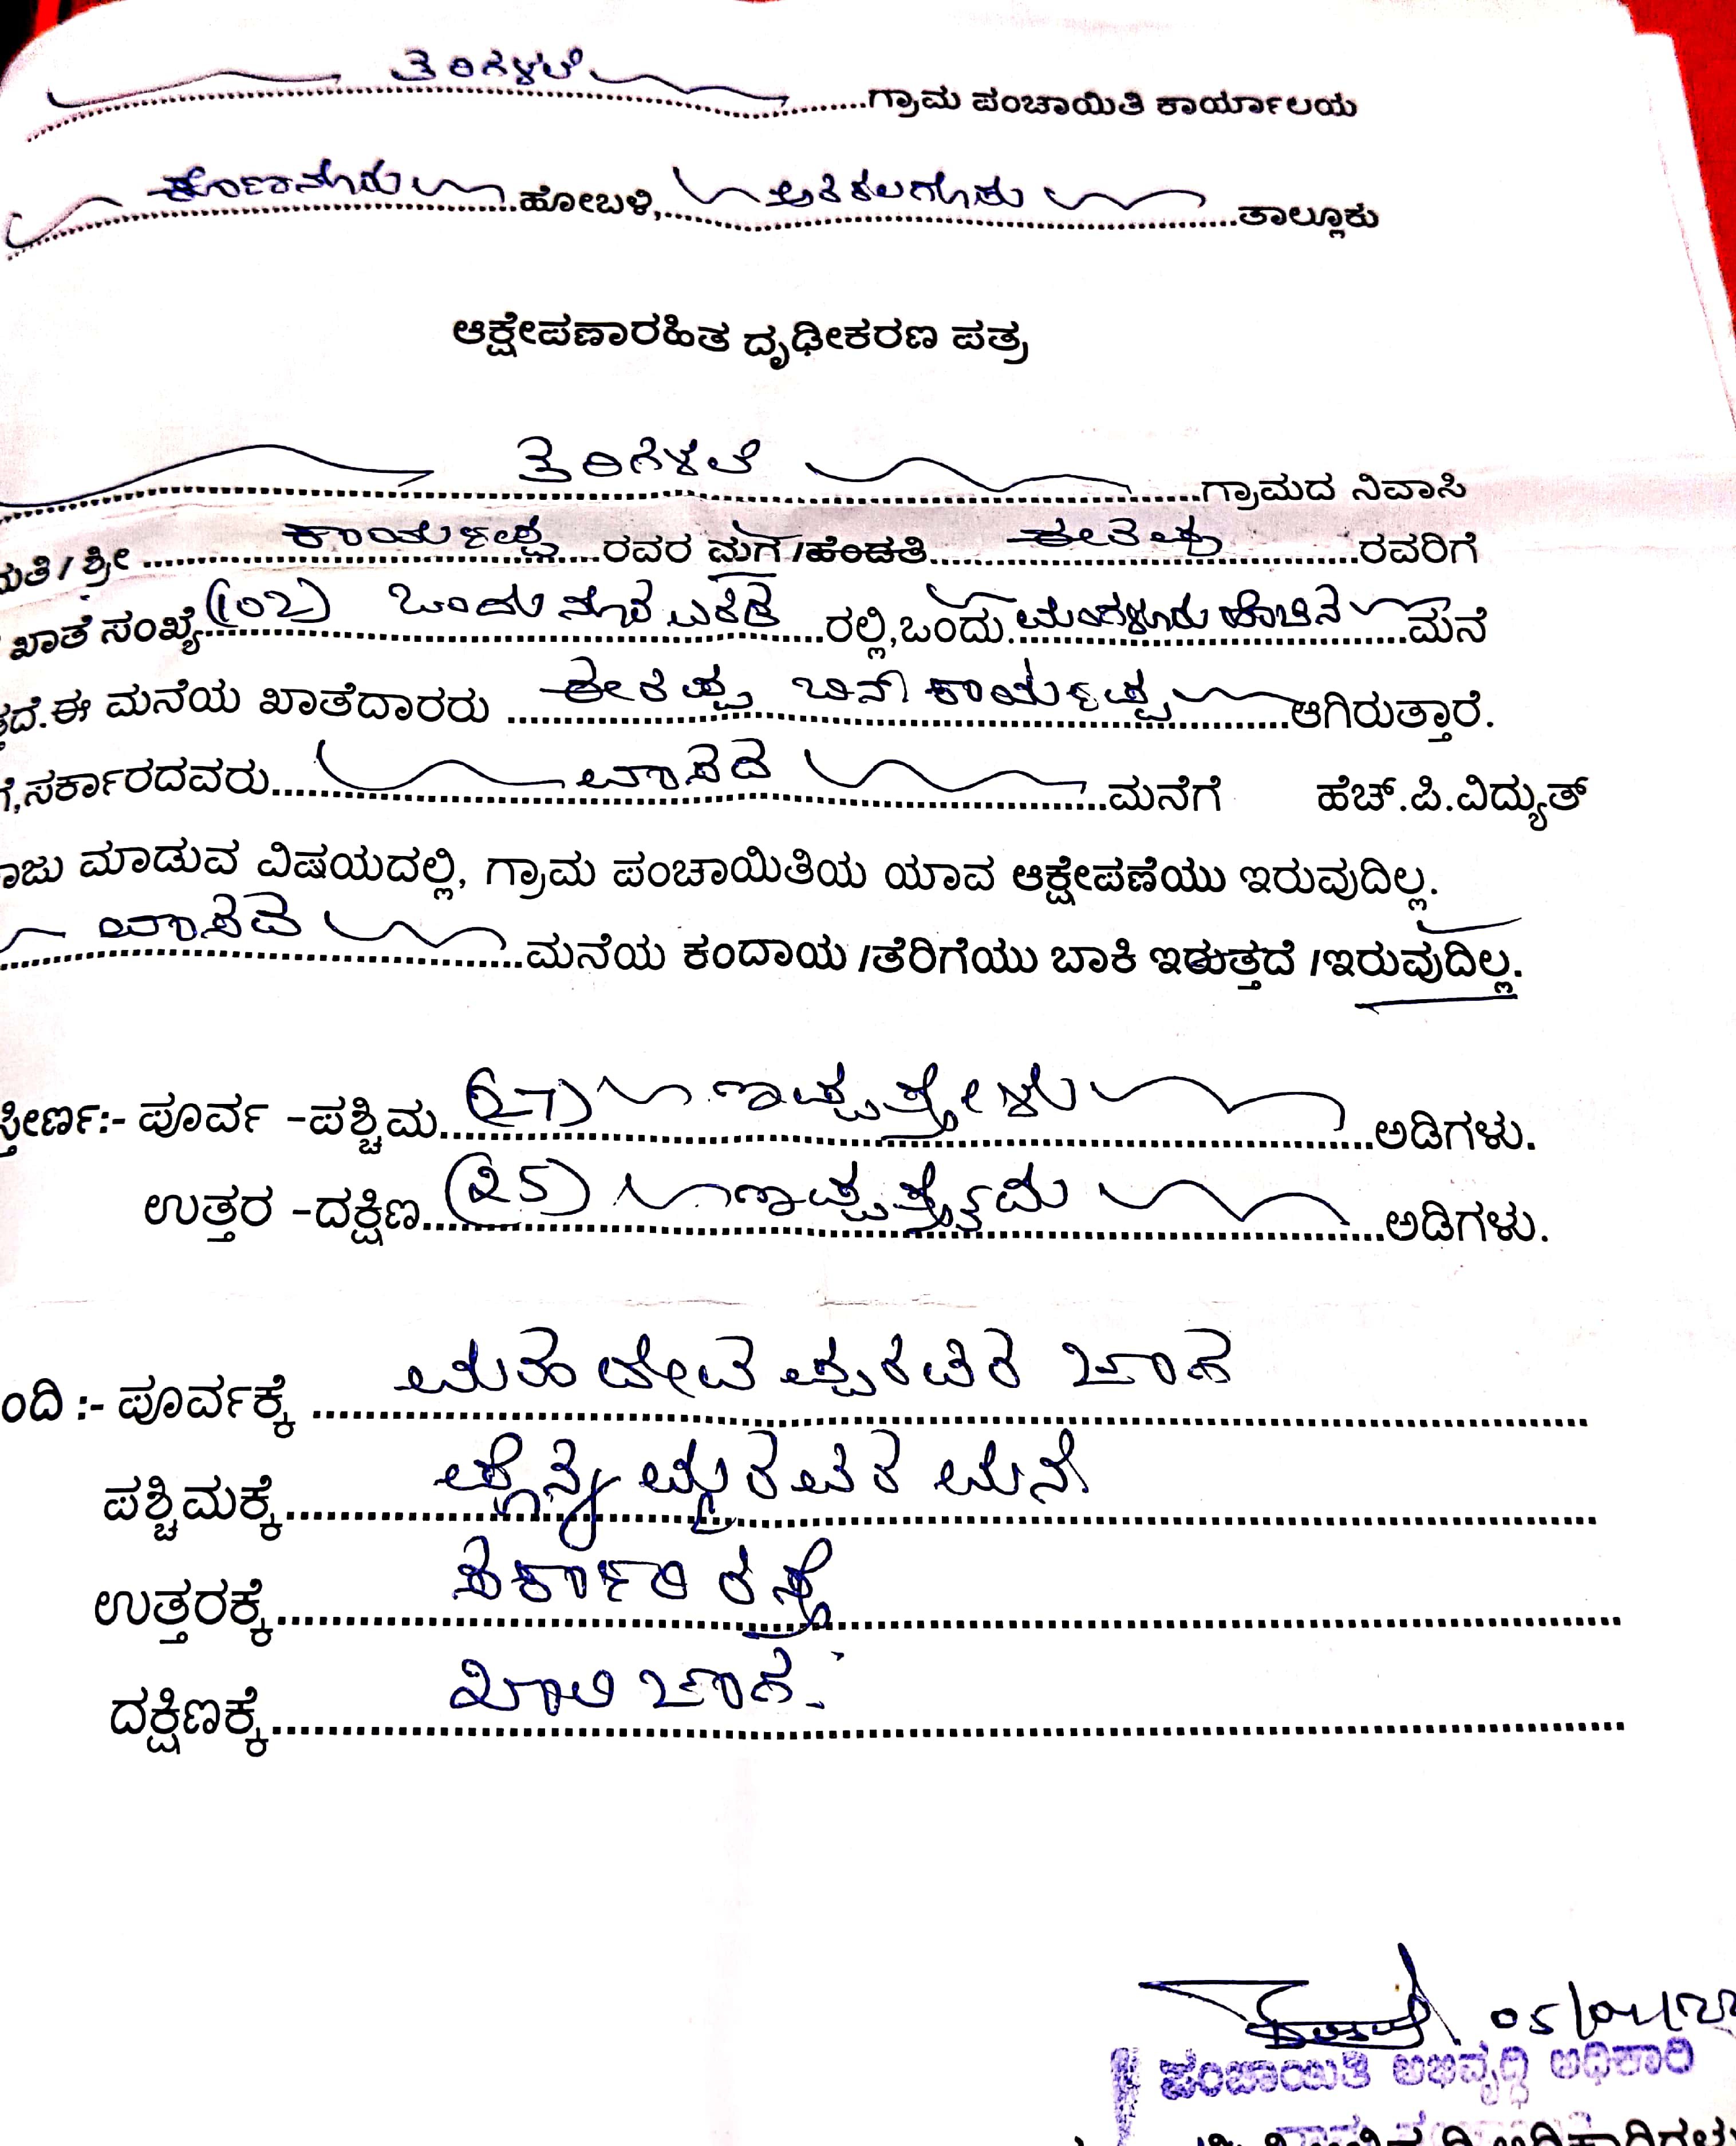 ತರಿಗಳಲೆ ಗ್ರಾಮ ಪಂಚಾಯಿತಿ ಕಾರ್ಯಾಲಯ
ಕೊಣನೂರು ಹೋಬಳಿ, ಅರಕಲಗೂಡು ತಾಲ್ಲೂಕು
ಆಕ್ಷೇಪಣಾರಹಿತ ದೃಢೀಕರಣ ಪತ್ರ
ತರಿಗಳಲೆ ಗ್ರಾಮದ ನಿವಾಸಿ
ಮತಿ / ಶ್ರೀ ಕಾರ್ಯಪ್ಪ ರವರ ಮಗ /ಹೆಂಡತಿ ಈರಪ್ಪ ರವರಿಗೆ
ಖಾತೆ ಸಂಖ್ಯೆ (102) ಒಂದು ನೂರ ಎರಡ ರಲ್ಲಿ,ಒಂದು ಮಂಗಳೂರು ಹೆಂಚಿನ ಮನೆ
ತದೆ.ಈ ಮನೆಯ ಖಾತೆದಾರರು ಈರಪ್ಪ ಬಿನ್ ಕಾರ್ಯಪ್ಪ ಆಗಿರುತ್ತಾರೆ.
ಗೆ,ಸರ್ಕಾರದವರು ವಾಸದ ಮನೆಗೆ ಹೆಚ್.ಪಿ.ವಿದ್ಯುತ್
ಾಜು ಮಾಡುವ ವಿಷಯದಲ್ಲಿ, ಗ್ರಾಮ ಪಂಚಾಯಿತಿಯ ಯಾವ ಆಕ್ಷೇಪಣೆಯು ಇರುವುದಿಲ್ಲ.
ವಾಸದ ಮನೆಯ ಕಂದಾಯ /ತೆರಿಗೆಯು ಬಾಕಿ ಇರುತ್ತದೆ /ಇರುವುದಿಲ್ಲ.
ಸ್ತೀರ್ಣ:- ಪೂರ್ವ -ಪಶ್ಚಿಮ (27) ಇಪ್ಪತ್ತೇಳು ಅಡಿಗಳು.
ಉತ್ತರ -ದಕ್ಷಿಣ (25) ಇಪ್ಪತ್ತೈದು ಅಡಿಗಳು.
ಂದಿ :- ಪೂರ್ವಕ್ಕೆ ಮಹದೇವಪ್ಪರವರ ಜಾಗ
ಪಶ್ಚಿಮಕ್ಕೆ ರವರ ಮನೆ
ಉತ್ತರಕ್ಕೆ ಸರ್ಕಾರಿ ರಸ್ತೆ
ದಕ್ಷಿಣಕ್ಕೆ ಖಾಲಿ ಜಾಗ.
05/04/22
ಪಂಚಾಯಿತಿ ಅಭಿವೃದ್ಧಿ ಅಧಿಕಾರಿ